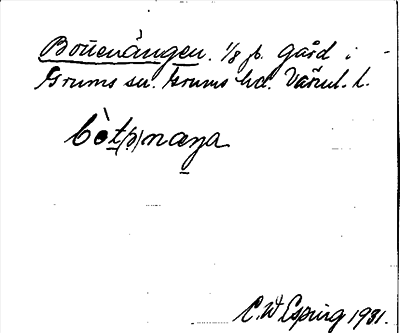 Bottenängen. 1/8 fr. gård i
Grums sn. Grums hd. Värml. l.
bòt(ə)næŋa
C. W. Esping 1931.